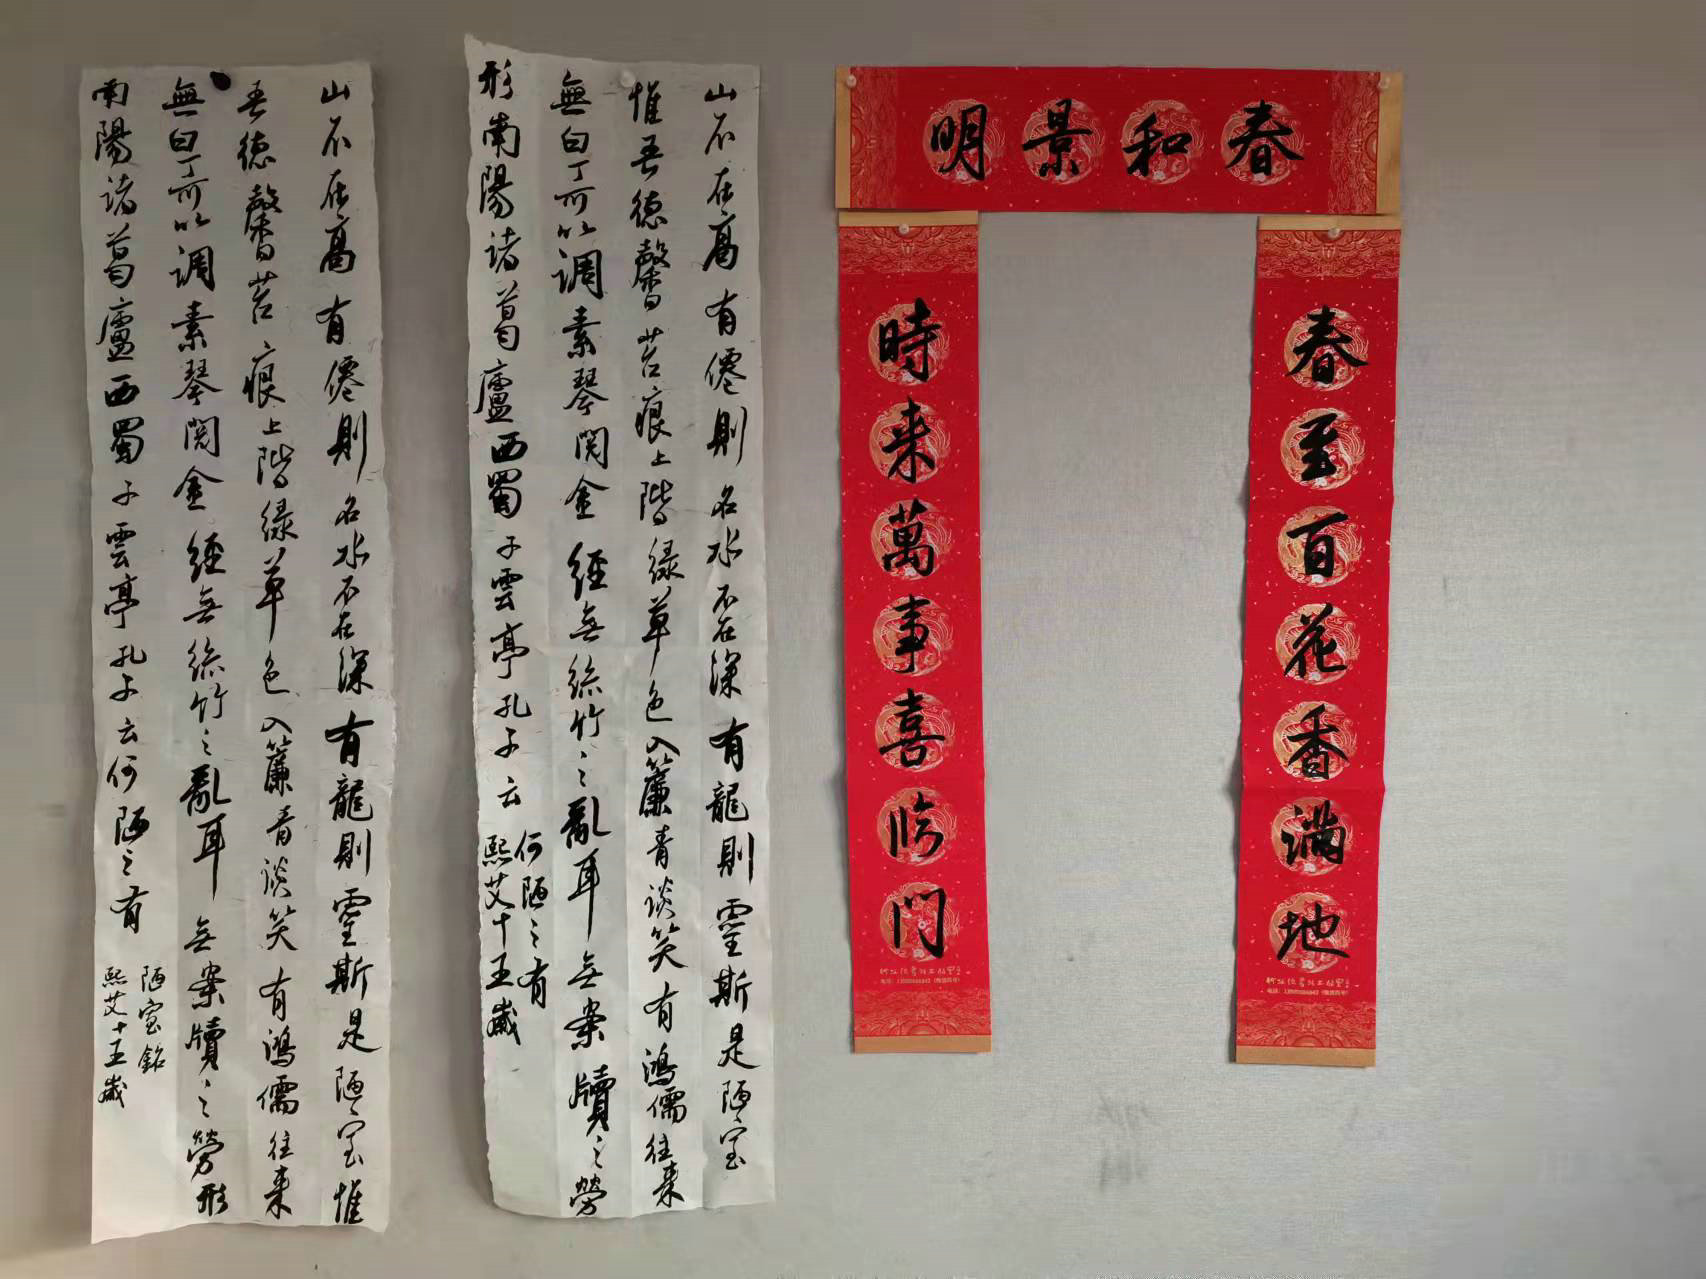 山不在高有僊則名水不在深有龍則靈斯是陋室惟
吾德馨苔痕上階緑草色入簾青談笑有鴻儒往来
無白丁可以调素琴閱金經無絲竹之亂耳無案牘之勞形
南陽诸葛廬西蜀子雲亭孔子云何陋之有
陋室銘
熙艾十五歲
山不在高有僊則名水不在深有龍則靈斯是陋室
惟吾德馨苔痕上階緑草色入簾青談笑有鴻儒往来
無白丁可以调素琴閱金經無絲竹之亂耳無案牘之勞
形南陽诸葛廬西蜀子雲亭孔子云
何陋之有
熙艾十五歲
春和景明
春至百花香满地
時来萬事喜临门